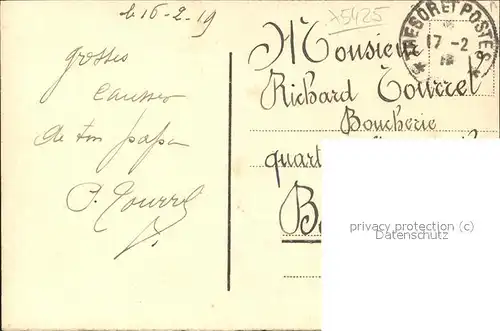 le 16-2-19
A5425
TRESOR ET POSTES
17-2
19
grosses
causses
de ton papa
P. Tourrel
Monsieur
Richard Tourrel
Boucherie
quart
B
privacy protection (c)
Datenschutz